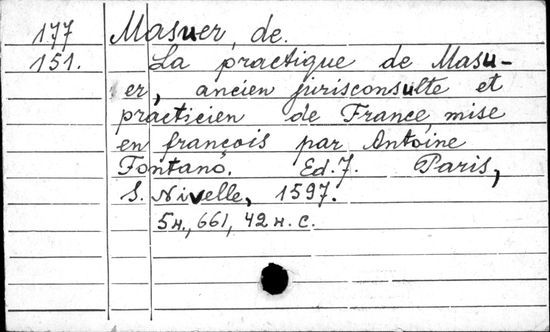 177 Masuer, de.
151. La practique de Masu-
er, ancien jurisconsulte et
practicien de France, mise
en françois par Antoine
Fontano. Ed. 7. Paris,
S. Nivelle, 1597.
5н., 661, 42 н. с.